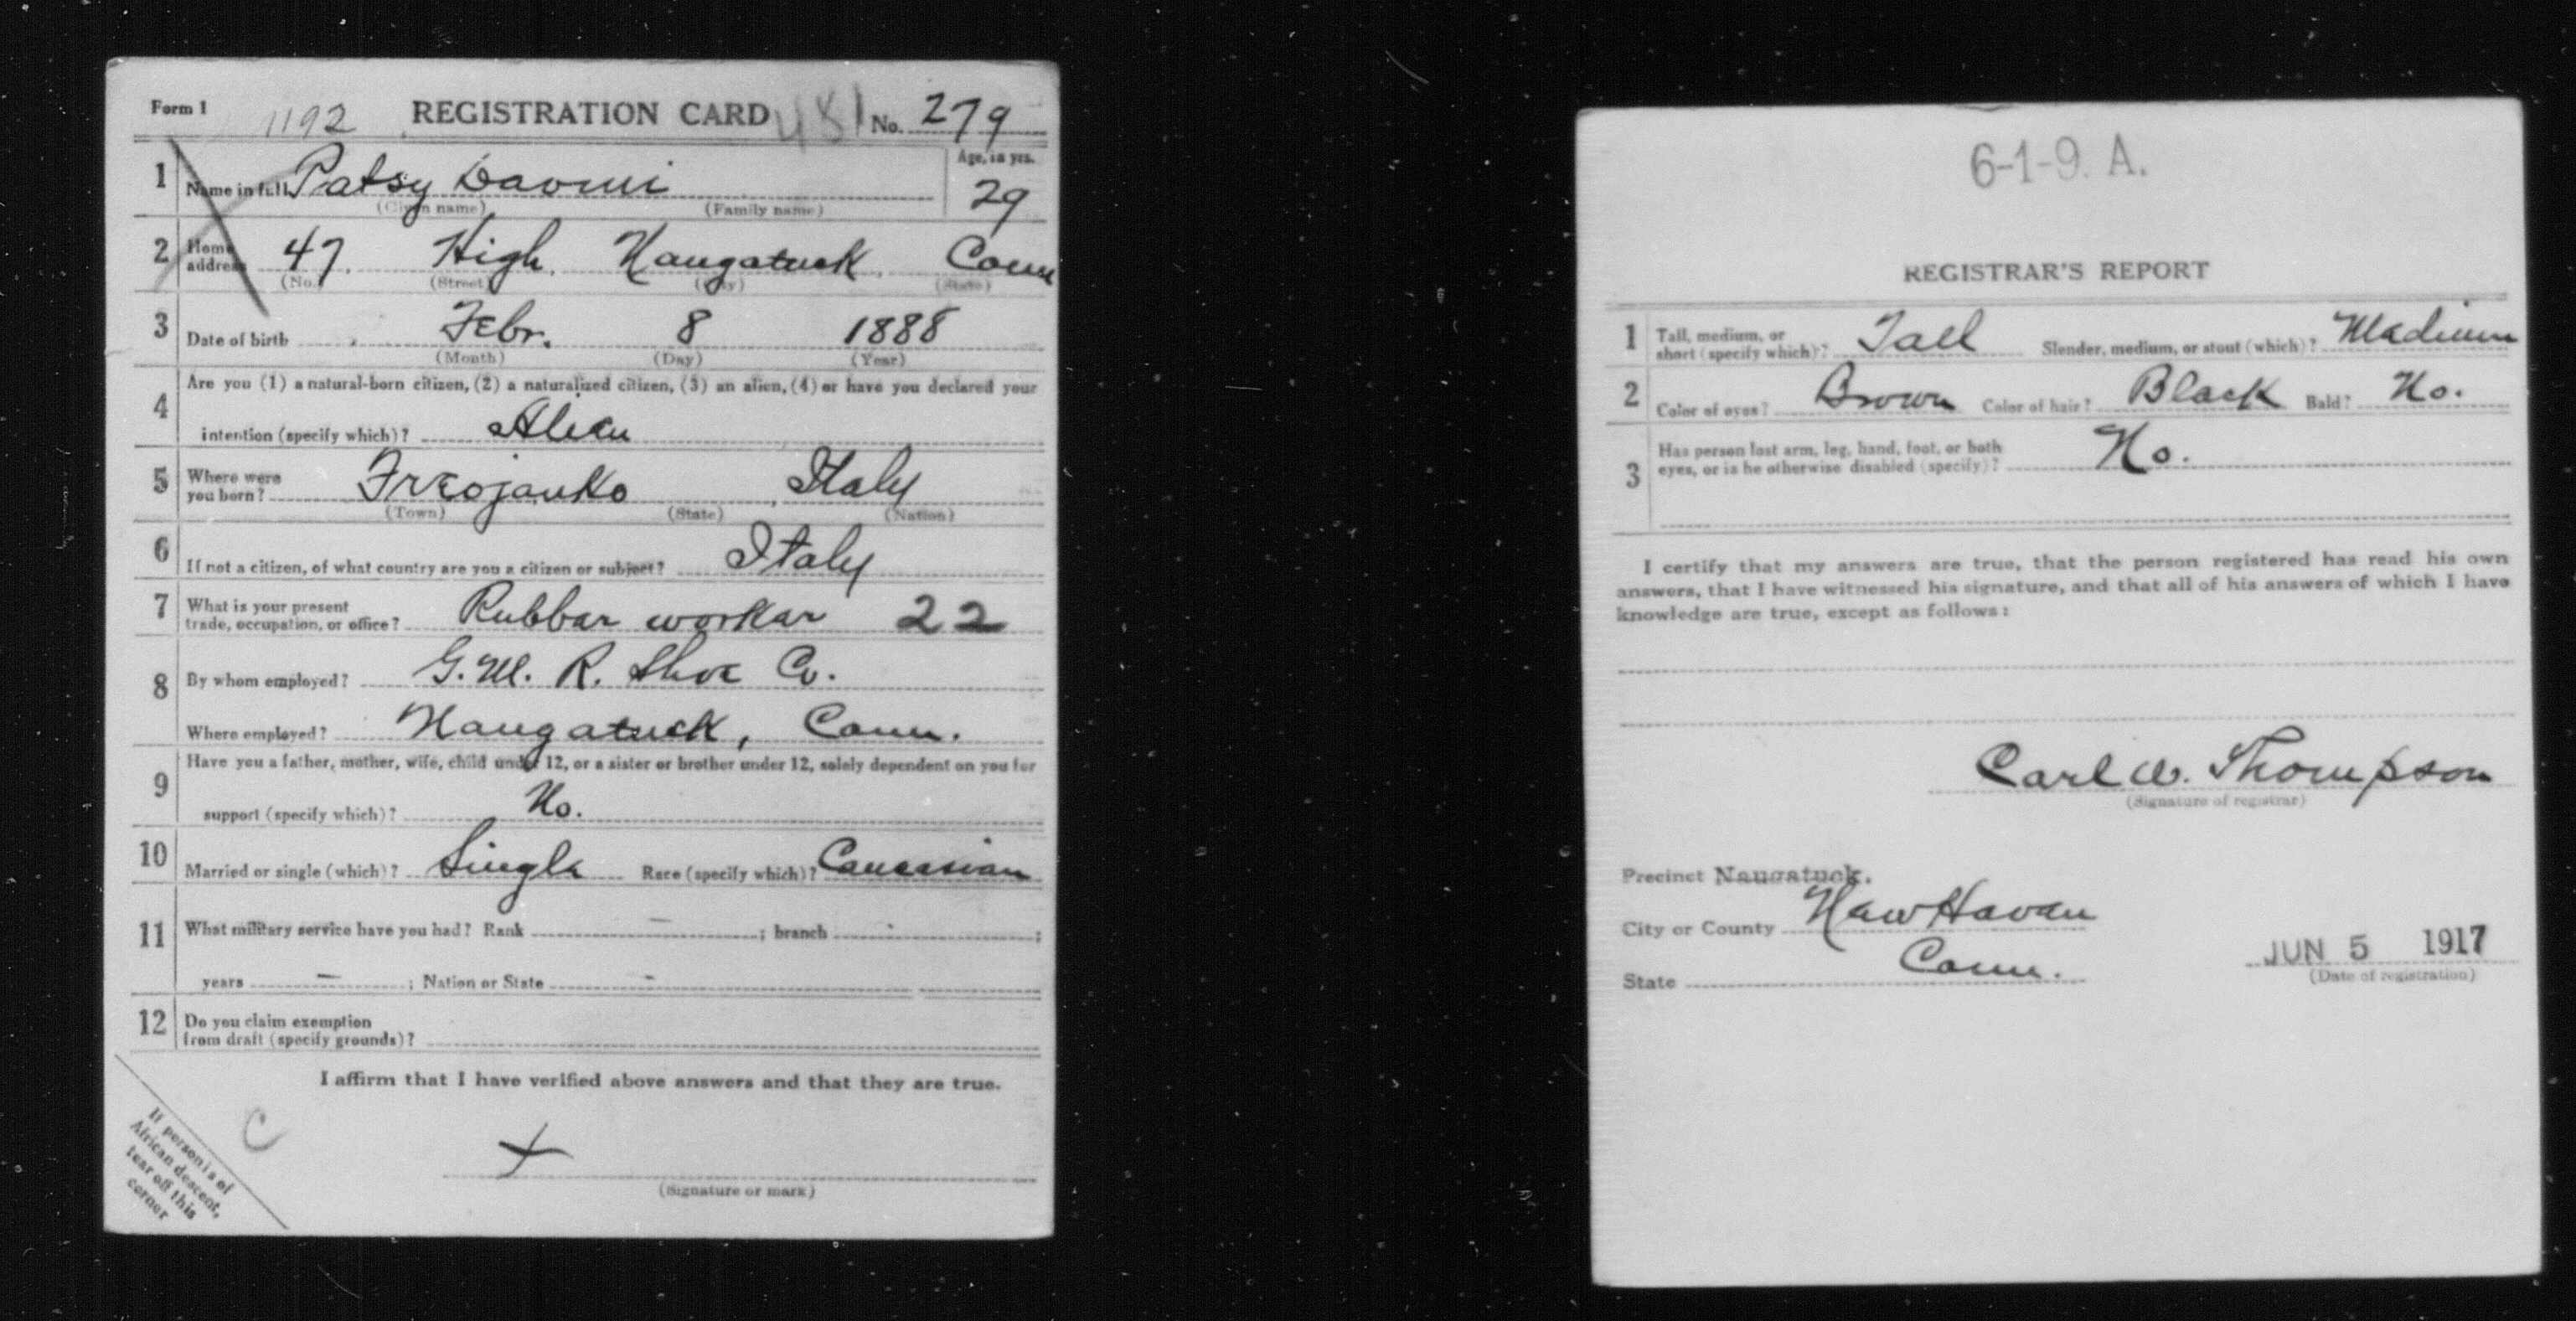 Form 1 1192 REGISTRATION CARD 481 No. 279
1 Name in full Patsy Daomi Age, in yrs.
(Given name) (Family name) 29
2 Home address 47. High. Naugatuck. Conn
(No.) (Street) (City) (State)
3 Date of birth Febr. 8 1888
(Month) (Day) (Year)
4 Are you (1) a natural-born citizen, (2) a naturalized citizen, (3) an alien, (4) or have you declared your
intention (specify which)? Alien
5 Where were you born? Freojanko, Italy
(Town) (State) (Nation)
6 If not a citizen, of what country are you a citizen or subject? Italy
7 What is your present trade, occupation, or office? Rubber worker 22
8 By whom employed? G. M. R. Shoe Co.
Where employed? Naugatuck, Conn.
9 Have you a father, mother, wife, child under 12, or a sister or brother under 12, solely dependent on you for
support (specify which)? No.
10 Married or single (which)? Single Race (specify which)? Caucasian
11 What military service have you had? Rank – ; branch - ;
years – ; Nation or State -
12 Do you claim exemption
from draft (specify grounds)?
I affirm that I have verified above answers and that they are true.
C
X
(Signature or mark)
If person is of
African descent,
tear off this
corner
6-1-9. A.
REGISTRAR'S REPORT
1 Tall, medium, or short (specify which)? Tall Slender, medium, or stout (which)? Medium
2 Color of eyes? Brown Color of hair? Black Bald? No.
3 Has person lost arm, leg, hand, foot, or both
eyes, or is he otherwise disabled (specify)? No.
I certify that my answers are true, that the person registered has read his own
answers, that I have witnessed his signature, and that all of his answers of which I have
knowledge are true, except as follows:
Carl W. Thompson
(Signature of registrar)
Precinct Naugatuck.
City or County New Haven
State Conn. JUN 5 1917
(Date of registration)